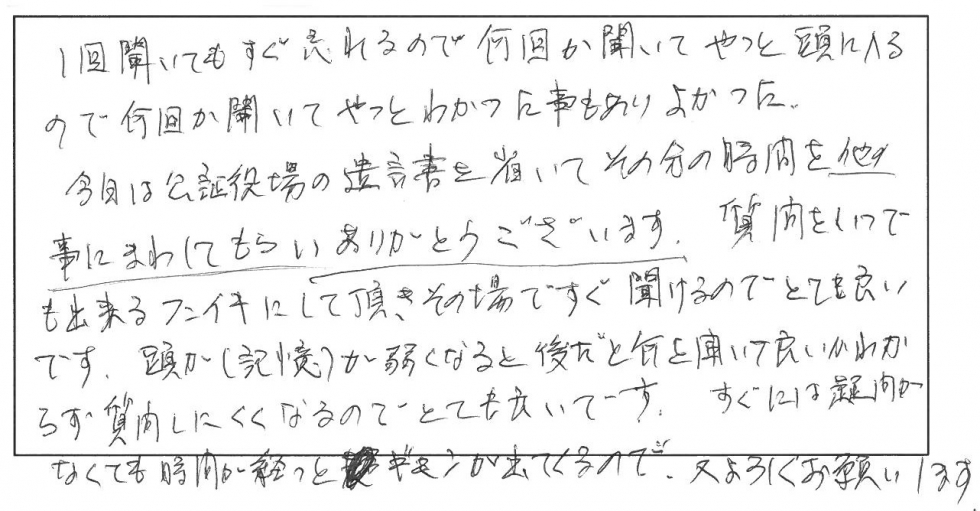 1回聞いてもすぐ忘れるので何回か聞いてやっと頭に入る
ので何回か聞いてやっとわかった事もありよかった.
今日は公証役場の遺言書を省いてその分の時間を他の
事にまわしてもらいありがとうございます. 質問をいつで
も出来るフンイキにして頂きその場ですぐ聞けるのでとても良い
です. 頭が(記憶)が弱くなると後だと何を聞いて良いかわか
らず質問しにくくなるのでとても良いです. すぐには疑問が
なくても時間が経つとギモンが出てくるので. 又よろしくお願いします